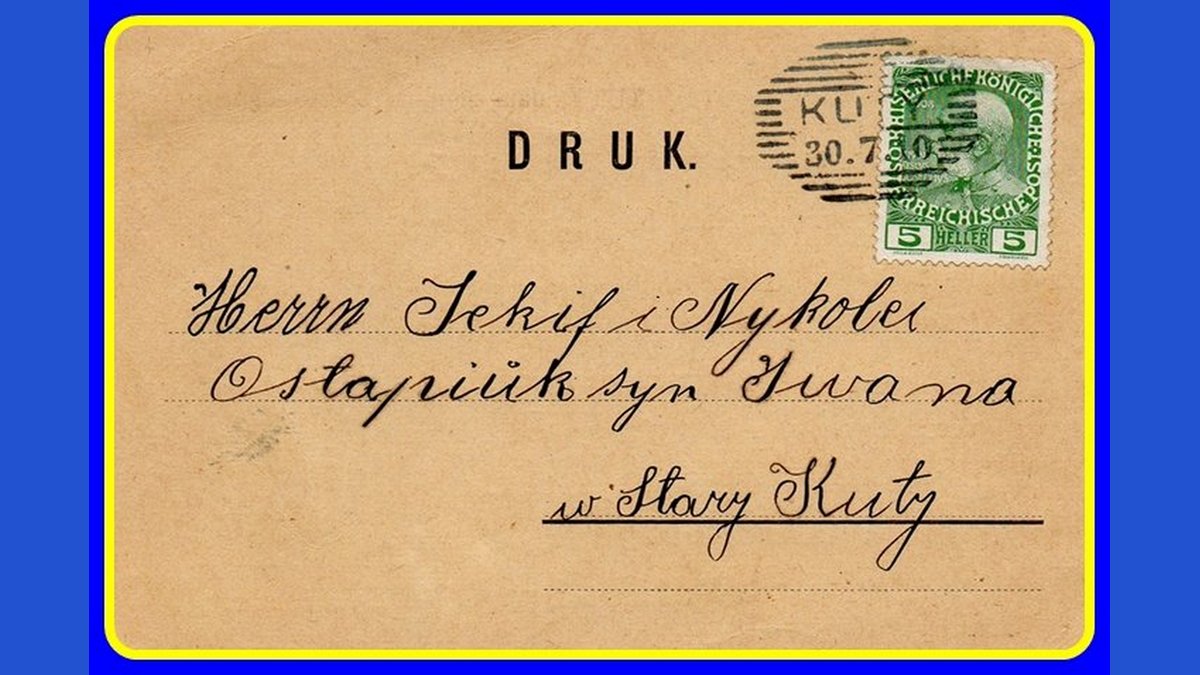 KUTY
30.7.10
KAISERLICHE KÖNIGLICHE ÖSTERREICHISCHE POST
5 HELLER 5
DRUK.
Herrn Jekif i Nykolei
Ostapiük syn Iwana
w Stary Kuty